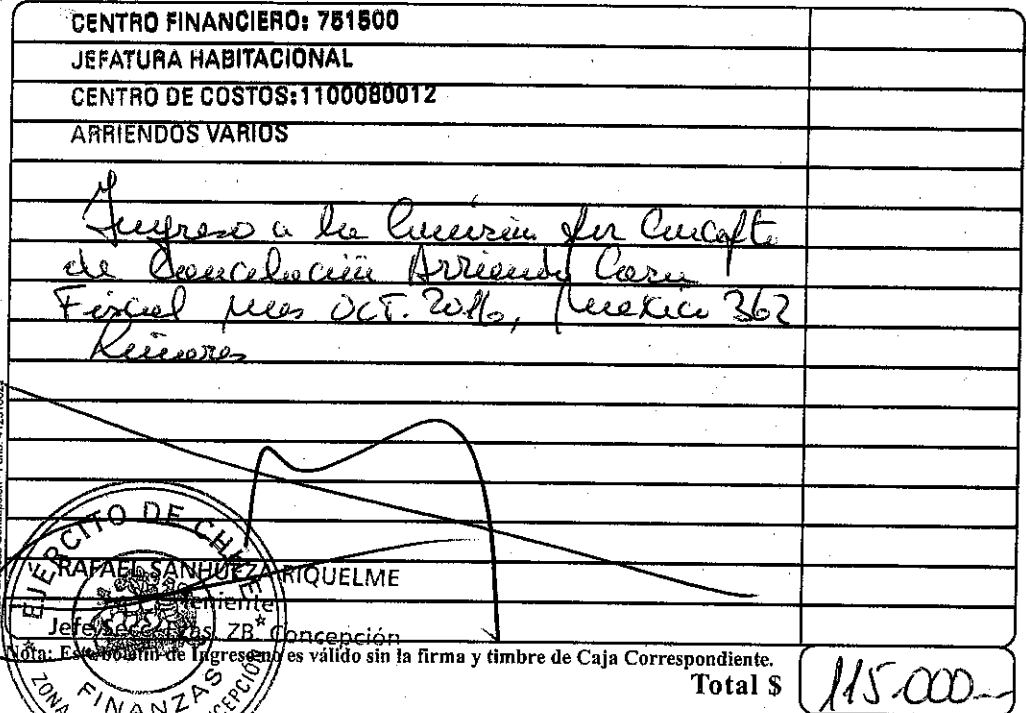 CENTRO FINANCIERO: 751500
JEFATURA HABITACIONAL
CENTRO DE COSTOS:1100080012
ARRIENDOS VARIOS
Ingreso a la Comisión por Concepto
de Cancelación Arriendo Casa
Fiscal mes OCT. 2016, Mexico 362
Linares
EJÉRCITO DE CHILE
RAFAEL SANHUEZA RIQUELME
Teniente
Jefe Secc. Fzas. ZB. Concepción
FINANZAS
ZONA
Nota: Este boletín de Ingreso no es válido sin la firma y timbre de Caja Correspondiente.
Total $ 115.000.-